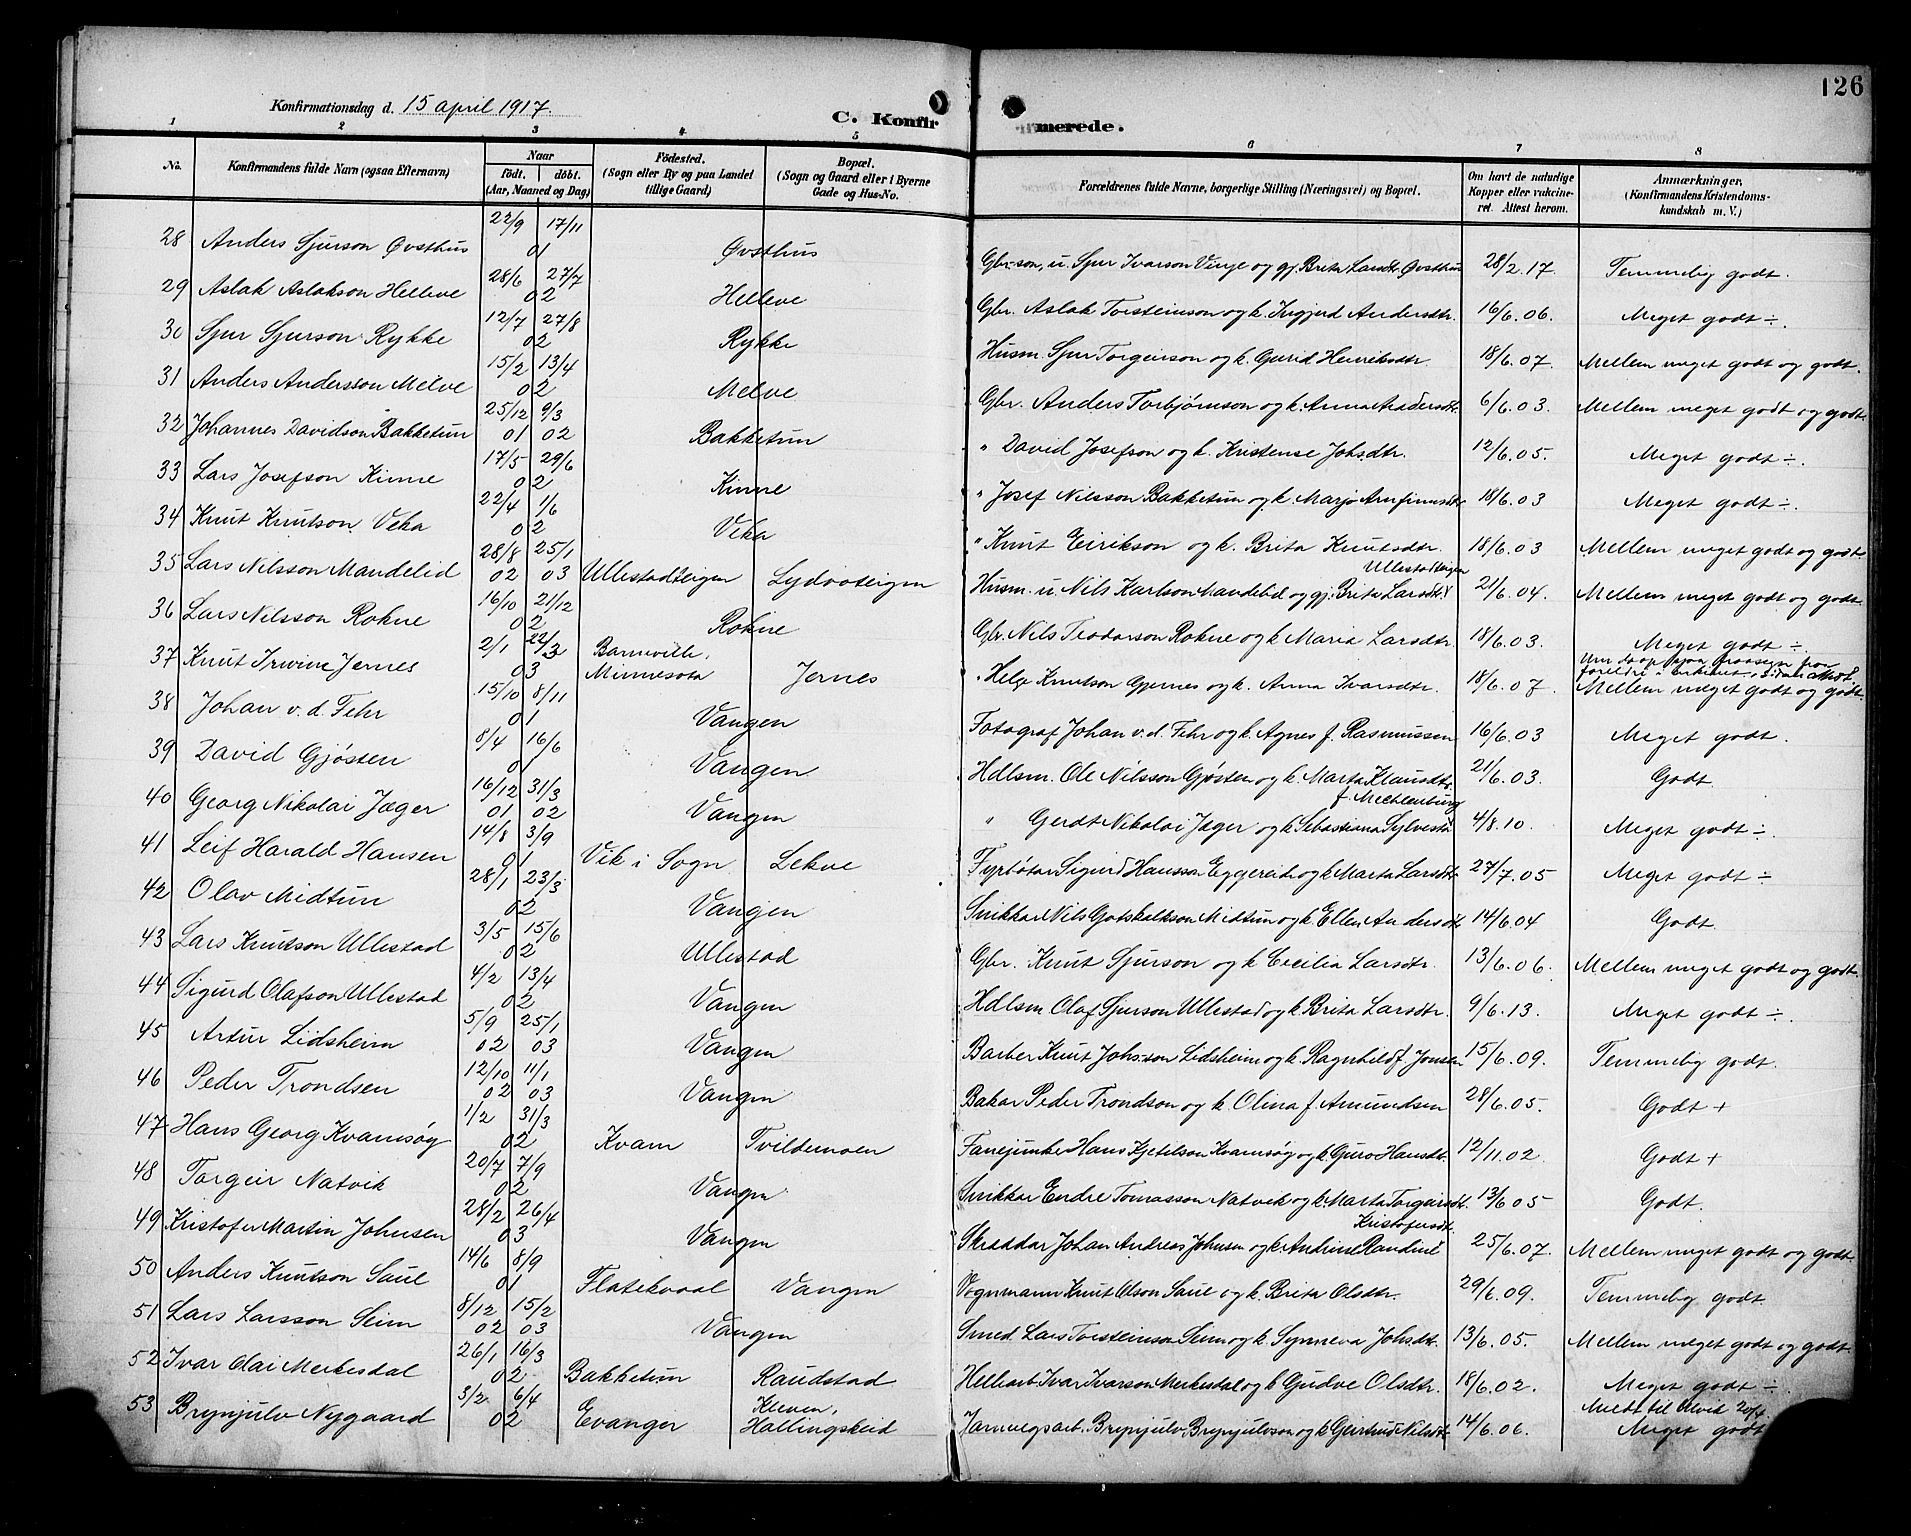 126
Konfirmationsdag d. 15 april 1917.
C. Konfirmerede.
1 2 3 4 5 6 7 8
No. Konfirmandens fulde Navn (ogsaa Efternavn) Naar født. døbt. (Aar, Maaned og Dag) Födested. (Sogn eller By og paa Landet tillige Gaard) Bopæl. (Sogn og Gaard eller i Byerne Gade og Hus-No. Forældrenes fulde Navne, borgerlige Stilling (Næringsvei) og Bopæl. Om havt de naturlige Kopper eller vakcineret. Attest herom. Anmærkninger, (Konfirmandens Kristendomskundskab m. V.)
28 Anders Sjurson Øvsthus 22/9 17/11 01 Øvsthus Gbr.son, u. Sjur Ivarson Vinje og gj. Brita Larsdtr. Øvsthus 28/2.17. Temmelig godt.
29 Aslak Aslakson Helleve 28/6 27/7 02 Helleve Gbr. Aslak Torsteinson og k. Ingjerd Andersdtr. 16/6.06. Meget godt ÷.
30 Sjur Sjurson Rykke 12/7 27/8 02 Rykke Husm. Sjur Torgeirson og k. Gurid Henriksdtr. 18/6.07. Mellem meget godt og godt.
31 Anders Andersson Melve 15/2 13/4 02 Melve Gbr. Anders Torbjørnson og k. Anna Andersdtr. 6/6.03. Mellem meget godt og godt.
32 Johannes Davidson Bakketun 25/12 01 9/3 02 Bakketun " David Josefson og k. Kristense Johsdtr. 12/6.05. Meget godt ÷.
33 Lars Josefson Kinne 17/5 29/6 02 Kinne " Josef Nilsson Bakketun og k. Marjo Arnfinnsdtr 18/6.03 Meget godt ÷.
34 Knut Knutson Veka 22/4 1/6 02 Veka " Knut Eirikson og k. Brita Knutsdtr. 18/6.03 Mellem meget godt og godt.
35 Lars Nilsson Mandelid 28/8 02 25/1 03 Ullestadteigen Lydvoteigen Husm. u. Nils Karlson Mandelid og gj. Brita Larsdtr. Ullestadteigen 21/6.04. Mellem meget godt og godt.
36 Lars Nilsson Rokne 16/10 21/12 02 Rokne Gbr. Nils Teodorson Rokne og k Maria Larsdtr. 18/6.03. Meget godt ÷.
37 Knut Irwine Jernes 2/1 22/3 03 Barneville, Minnesota Jernes " Helge Knutson Gjernes og k. Anna Ivarsdtr. 18/6.07. Mellem meget godt og godt.
38 Johan v. d. Fehr 15/10 8/11 01 Vangen Fotograf Johan v. d. Fehr og k. Agnes f. Rasmussen 16/6.03 Meget godt.
39 David Gjøsten 8/4 16/6 01 Vangen Hdlsm. Ole Nilsson Gjøsten og k. Marta Klausdtr. 21/6.03. Godt.
40 Georg Nikolai Jæger 16/12 01 31/3 02 Vangen " Gerdt Nikolai Jæger og k Sebastiana Sylvesta f. Mechlenburg 4/8.10. Meget godt ÷.
41 Leif Harald Hansen 14/8 3/9 01 Vik i Sogn Lekve Fyrbøtar Sigurd Hansson Eggereit og k Marta Larsdtr 27/7.05 Meget godt ÷
42 Olav Midtun 28/1 23/3 02 Vangen Snikkar Nils Gotskalkson Midtun og k Ellen Andersdtr 14/6.04 Godt.
43 Lars Knutson Ullestad 3/5 15/6 02 Ullestad Gbr. Knut Sjurson og k Cecilia Larsdtr. 13/6.06. Mellem meget godt og godt.
44 Sigurd Olafson Ullestad 4/2 13/4 02 Vangen Hdlsm. Olaf Sjurson Ullestad og k. Brita Larsdtr. 9/6.13. Meget godt ÷.
45 Artur Lidsheim 5/9 02 25/1 03 Vangen Barber Knut Johs:son Lidsheim og k. Ragnhild f. Jonsen 15/6.09. Temmelig godt.
46 Peder Trondsen 12/10 02 11/1 03 Vangen Bakar Peder Trondson og k. Olina f. Amundsen 28/6.05. Godt +
47 Hans Georg Kvamsøg 1/2 31/3 02 Kvam Tvildemoen Fanejunker Hans Kjetilson Kvamsøg og k. Guro Hansdtr. 12/11.02. Godt +
48 Torgeir Natvik 20/7 7/9 02 Vangen Snikkar Endre Tomasson Natvik og k. Marta Torgeirsdtr. 13/6 05 Godt.
49 Kristofer Martin Johnsen 28/2 26/4 03 Vangen Skræddar Johan Andreas Johnsen og k Andrine Randine Kristofersdtr. 25/6.07. Mellem meget godt og godt.
50 Anders Knutson Saue 14/6 8/9 01 Flatekvaal Vangen Vognmann Knut Olson Saue og k. Brita Olsdtr. 29/6.09. Temmelig godt.
51 Lars Larsson Seim 8/12 02 15/2 03 Vangen Smed Lars Torsteinson Seim og k. Synneva Johsdtr. 13/6.05. Mellem meget godt og godt.
52 Ivar Olai Merkesdal 26/1 16/3 02 Bakketun Raudstad Ivar Ivarson Merkesdal og k Gudve Olsdtr. 18/6.02. Meget godt ÷.
53 Brynjulv Nygaard 3/2 6/4 02 Evanger Kleven, Hallingskeid Jarnvegsarb. Brynjulv Brynjulvson og k Geirtrud Nilsdtr 14/6.06. Meldt til Ulvik 20/4 Meget godt